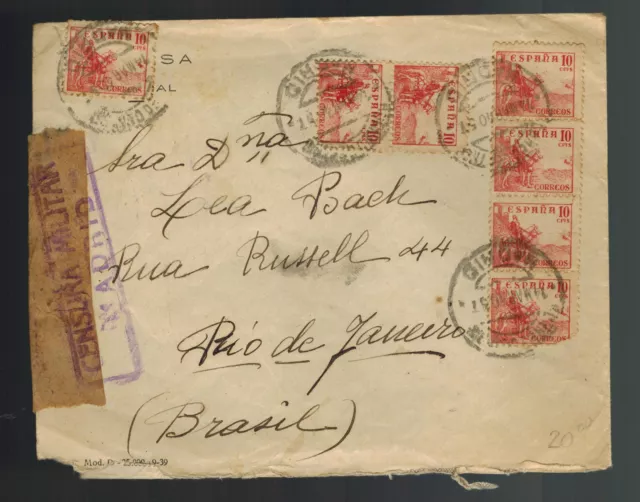 10
CTS
CORREOS
SA
AL
ESPAÑA 10
CTS
ESPAÑA 10
CTS
CORREOS
ESPAÑA 10
CTS
CORREOS
ESPAÑA 10
CORREOS
ESPAÑA 10
CORREOS
ESPAÑA 10
CORREOS
MADRID
CENSURA MILITAR
MADRID
Sra Dña
Lea Bach
Rua Russell 44
Río de Janeiro
(Brasil)
20